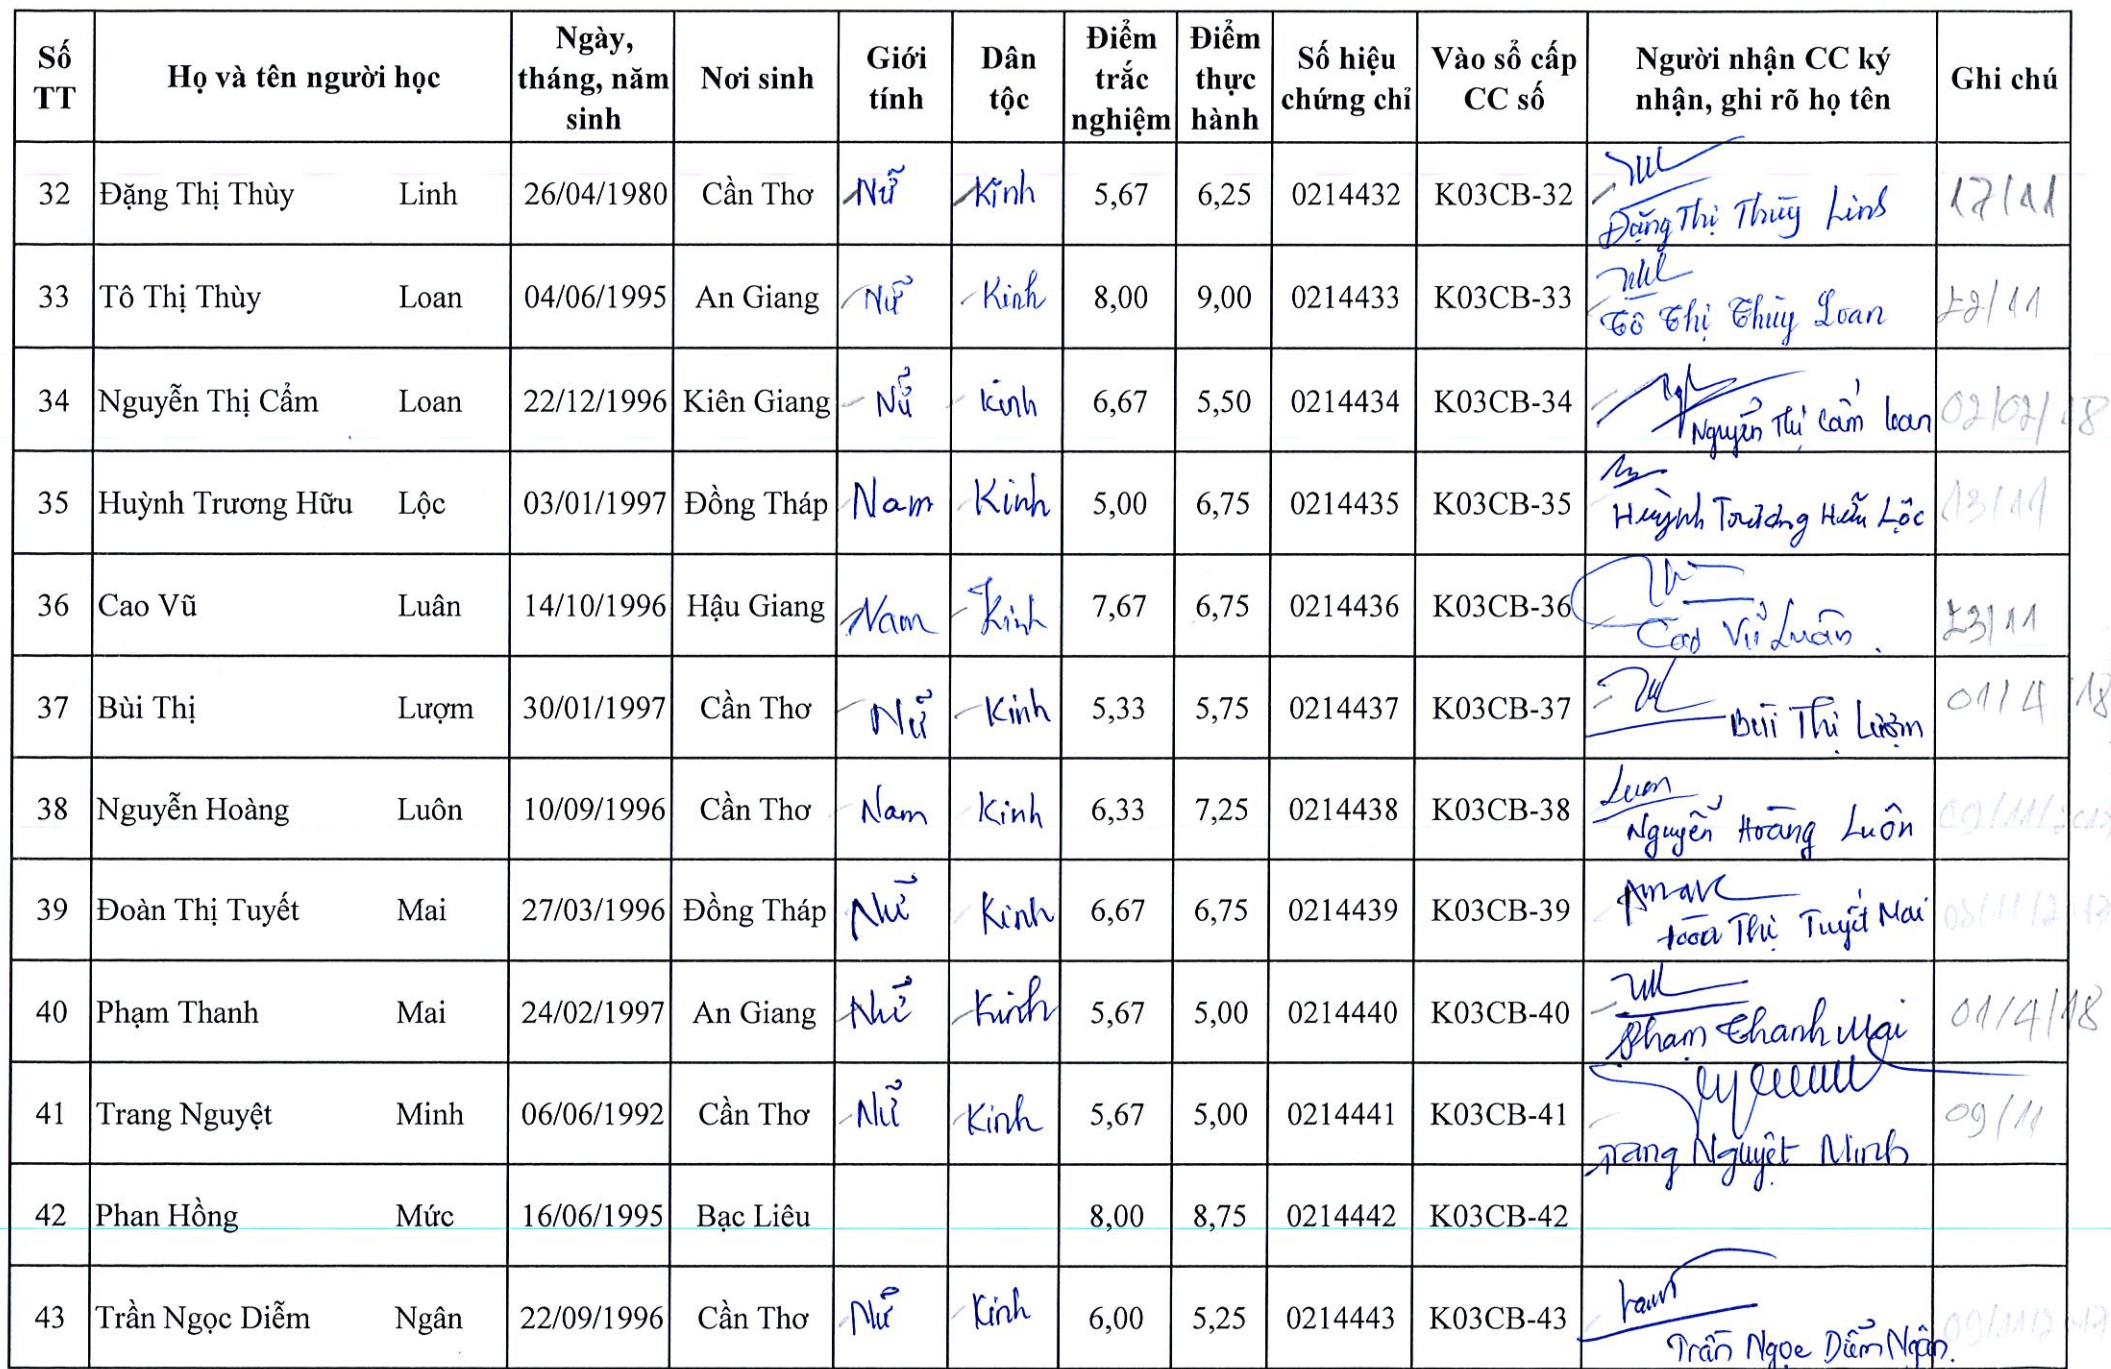 Số TT | Họ và tên người học | Ngày, tháng, năm sinh | Nơi sinh | Giới tính | Dân tộc | Điểm trắc nghiệm | Điểm thực hành | Số hiệu chứng chỉ | Vào sổ cấp CC số | Người nhận CC ký nhận, ghi rõ họ tên | Ghi chú
32 | Đặng Thị Thùy Linh | 26/04/1980 | Cần Thơ | Nữ | Kinh | 5,67 | 6,25 | 0214432 | K03CB-32 | Đặng Thị Thùy Linh | 17/11
33 | Tô Thị Thùy Loan | 04/06/1995 | An Giang | Nữ | Kinh | 8,00 | 9,00 | 0214433 | K03CB-33 | Tô Thị Thùy Loan | 22/11
34 | Nguyễn Thị Cẩm Loan | 22/12/1996 | Kiên Giang | Nữ | Kinh | 6,67 | 5,50 | 0214434 | K03CB-34 | Nguyễn Thị Cẩm Loan | 02/02/18
35 | Huỳnh Trương Hữu Lộc | 03/01/1997 | Đồng Tháp | Nam | Kinh | 5,00 | 6,75 | 0214435 | K03CB-35 | Huỳnh Trương Hữu Lộc | 13/11
36 | Cao Vũ Luân | 14/10/1996 | Hậu Giang | Nam | Kinh | 7,67 | 6,75 | 0214436 | K03CB-36 | Cao Vũ Luân. | 23/11
37 | Bùi Thị Lượm | 30/01/1997 | Cần Thơ | Nữ | Kinh | 5,33 | 5,75 | 0214437 | K03CB-37 | Bùi Thị Lượm | 01/4/18
38 | Nguyễn Hoàng Luôn | 10/09/1996 | Cần Thơ | Nam | Kinh | 6,33 | 7,25 | 0214438 | K03CB-38 | Luon Nguyễn Hoàng Luôn | 09/11/2017
39 | Đoàn Thị Tuyết Mai | 27/03/1996 | Đồng Tháp | Nữ | Kinh | 6,67 | 6,75 | 0214439 | K03CB-39 | Đoàn Thị Tuyết Mai
40 | Phạm Thanh Mai | 24/02/1997 | An Giang | Nữ | Kinh | 5,67 | 5,00 | 0214440 | K03CB-40 | Phạm Thanh Mai | 01/4/18
41 | Trang Nguyệt Minh | 06/06/1992 | Cần Thơ | Nữ | Kinh | 5,67 | 5,00 | 0214441 | K03CB-41 | Trang Nguyệt Minh | 09/11
42 | Phan Hồng Mức | 16/06/1995 | Bạc Liêu | 8,00 | 8,75 | 0214442 | K03CB-42
43 | Trần Ngọc Diễm Ngân | 22/09/1996 | Cần Thơ | Nữ | Kinh | 6,00 | 5,25 | 0214443 | K03CB-43 | Trần Ngọc Diễm Ngân. | 09/11/2017